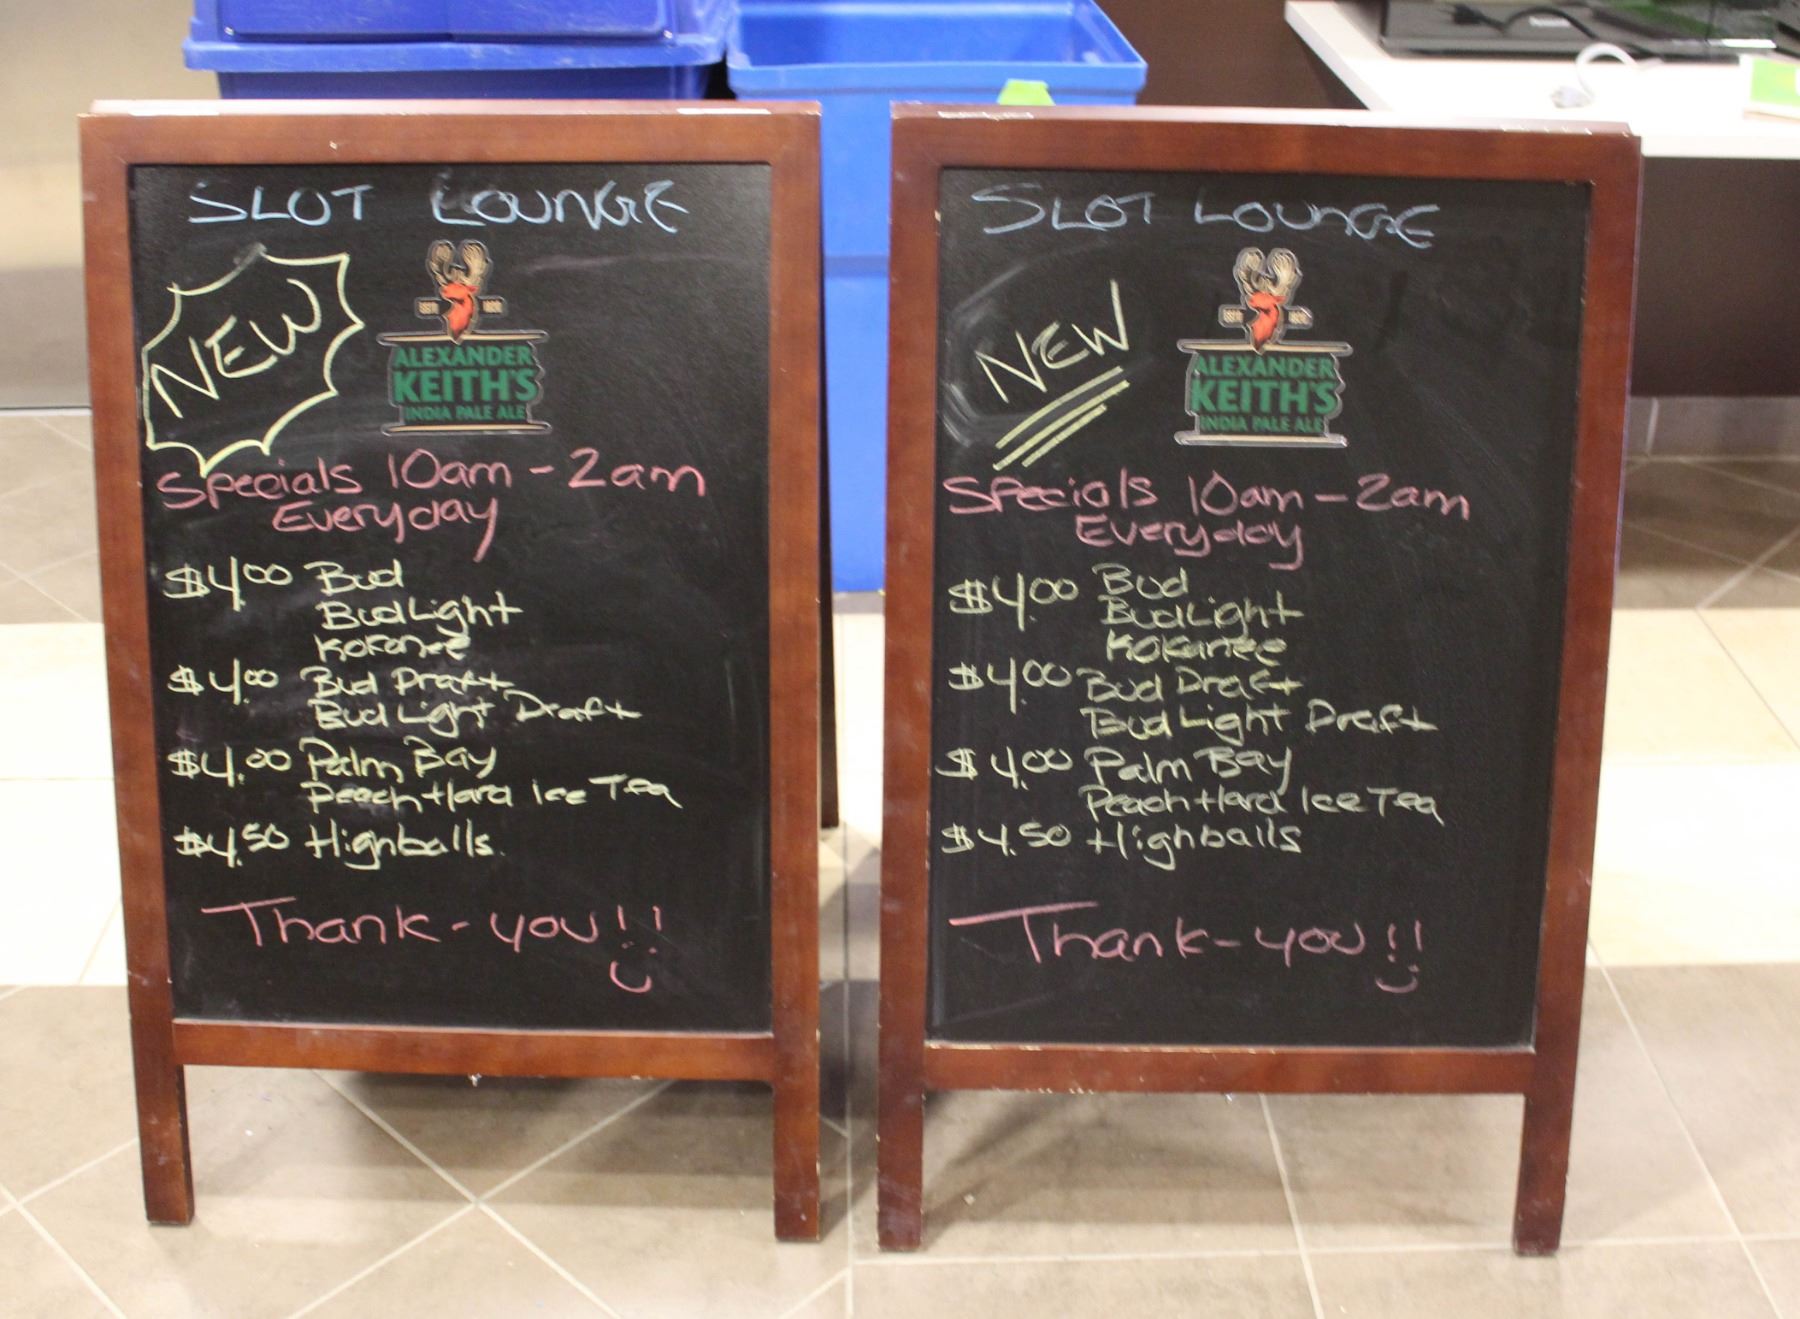 SLOT LOUNGE
NEW
ESTD 1820
ALEXANDER
KEITH'S
INDIA PALE ALE
Specials 10am - 2am
Everyday
$4.00 Bud
Bud Light
Kokanee
$4.00 Bud Draft
Bud Light Draft
$4.00 Palm Bay
Peach Hard Ice Tea
$4.50 Highballs.
Thank-you!!
SLOT LOUNGE
NEW
ESTD 1820
ALEXANDER
KEITH'S
INDIA PALE ALE
Specials 10am - 2am
Everyday
$4.00 Bud
Bud Light
Kokanee
$4.00 Bud Draft
Bud Light Draft
$4.00 Palm Bay
Peach Hard Ice Tea
$4.50 Highballs
Thank-you!!